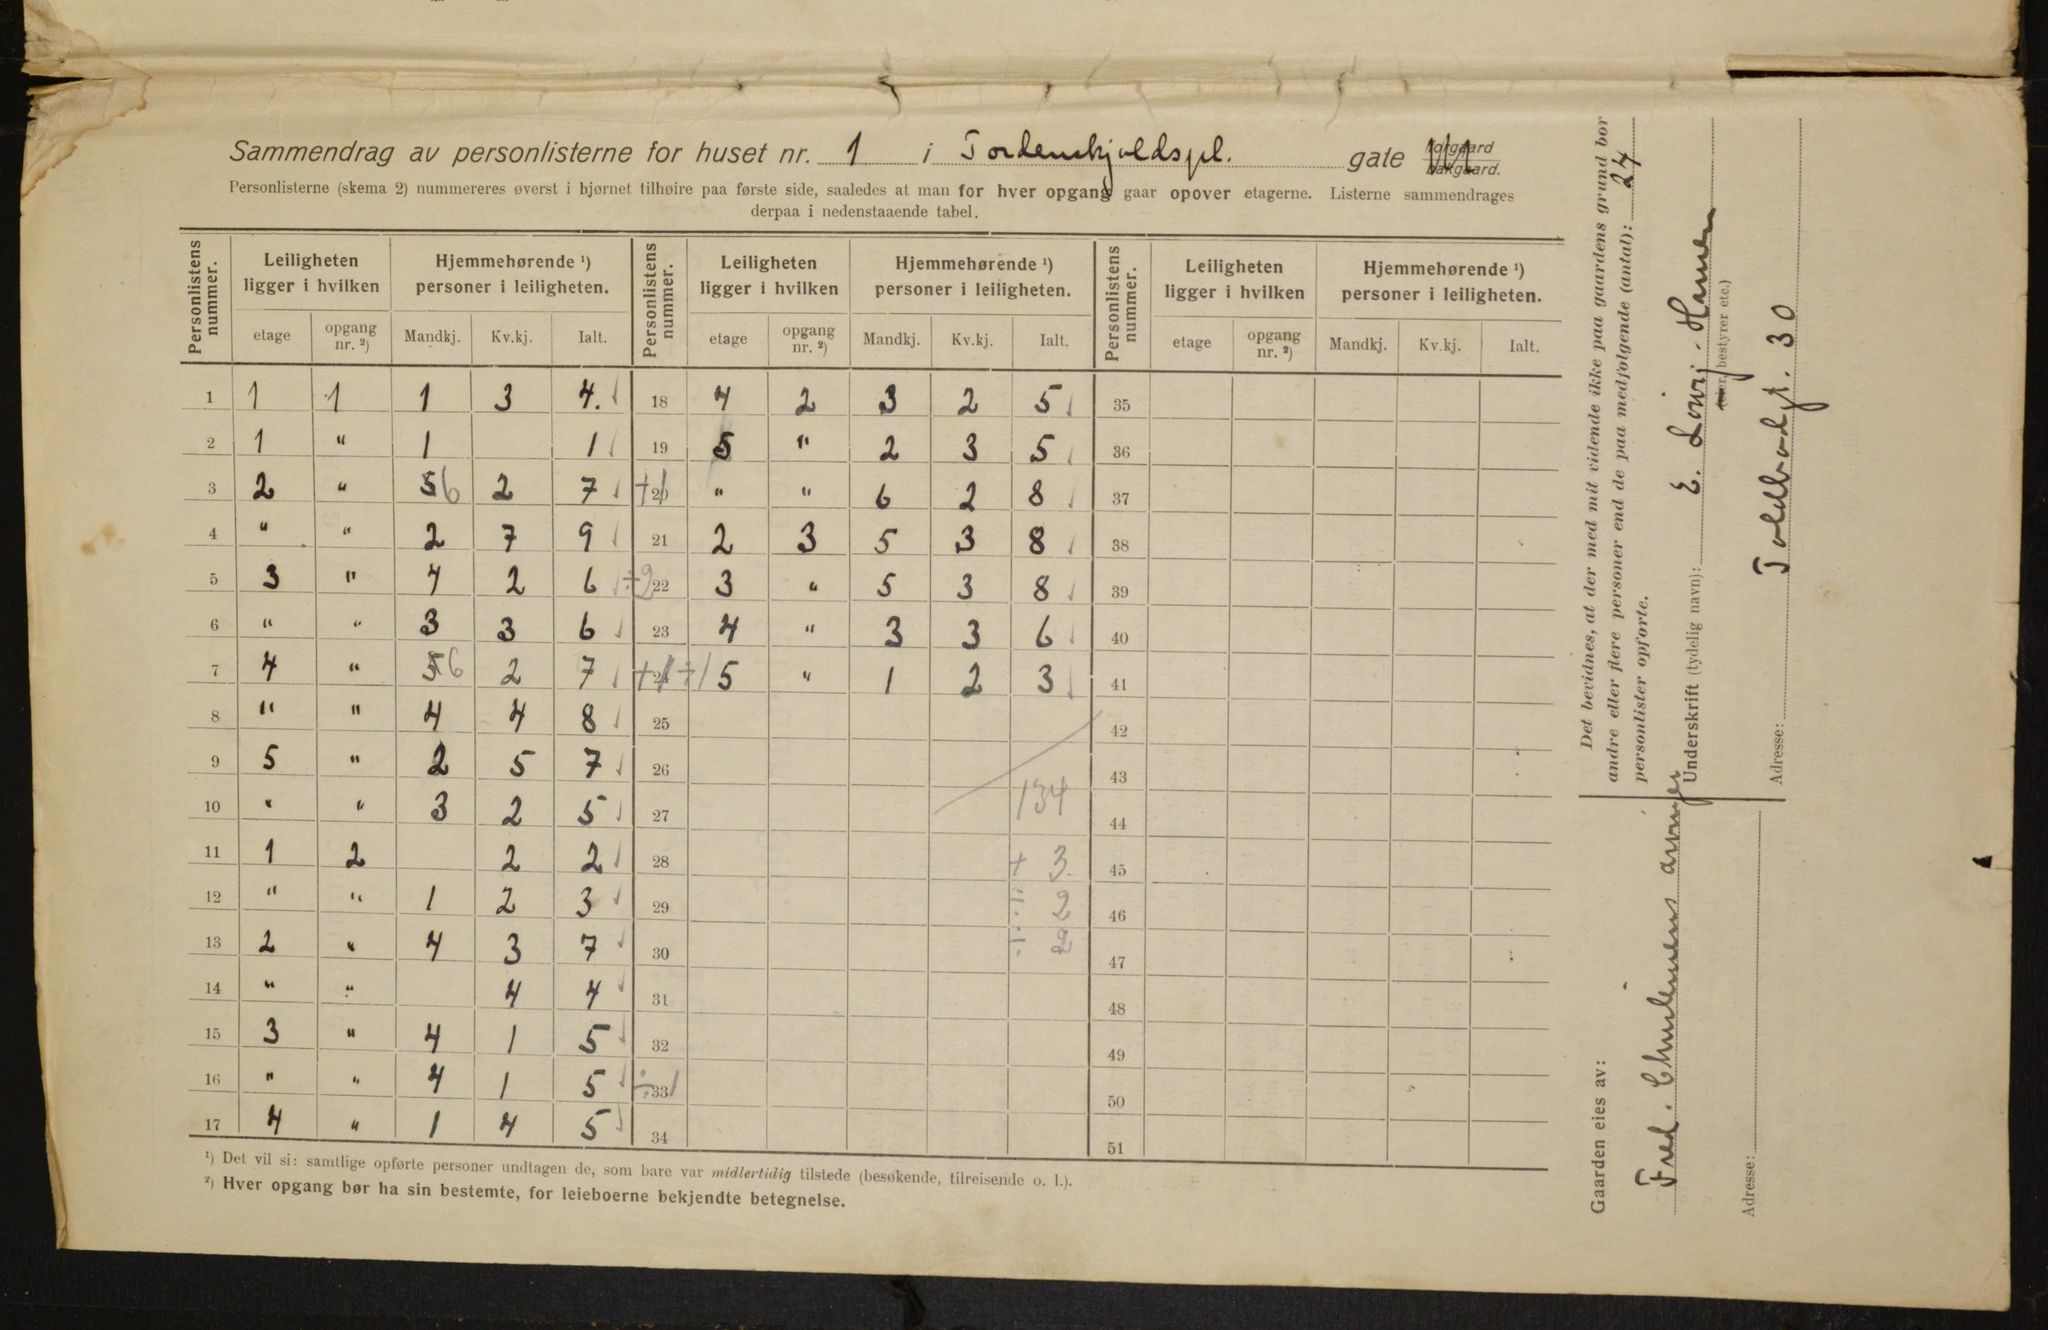 Sammendrag av personlisterne for huset nr. 1 i Tordenskjoldspl. gate forgaard bakgaard.
Personlisterne (skema 2) nummereres øverst i bjørnet tilhøire paa første side, saaledes at man for hver opgang gaar opover etagerne. Listerne sammendrages
derpaa i nedenstaaende tabel.
Personlistens nummer. Leiligheten ligger i hvilken Hjemmehørende ¹) personer i leiligheten. Personlistens nummer. Leiligheten ligger i hvilken Hjemmehørende ¹) personer i leiligheten. Personlistens nummer. Leiligheten ligger i hvilken Hjemmehørende ¹) personer i leiligheten.
etage opgang nr. ²) Mandkj. Kv.kj. Ialt. etage opgang nr. ²) Mandkj. Kv.kj. Ialt. etage opgang nr. ²) Mandkj. Kv.kj. Ialt.
1 1 1 1 3 4. 18 4 2 3 2 5 35
2 1 " 1 1 19 5 " 2 3 5 36
3 2 " 5 6 2 7 +1 20 " " 6 2 8 37
4 " " 2 7 9 21 2 3 5 3 8 38
5 3 " 4 2 6 ÷2 22 3 " 5 3 8 39
6 " " 3 3 6 23 4 " 3 3 6 40
7 4 " 5 6 2 7 +1 24 +1 5 " 1 2 3 41
8 " " 4 4 8 25 42
9 5 " 2 5 7 26 43
10 " " 3 2 5 27 134 44
11 1 2 2 2 28 + 3 45
12 " " 1 2 3 29 ÷ 2 46
13 2 " 4 3 7 30 ÷ 2 47
14 " " 4 4 31 48
15 3 " 4 1 5 32 49
16 " " 4 1 5 ÷1 33 50
17 4 " 1 4 5 34 51
¹) Det vil si: samtlige opførte personer undtagen de, som bare var midlertidig tilstede (besøkende, tilreisende o. l.).
²) Hver opgang bør ha sin bestemte, for leieboerne bekjendte betegnelse.
Det bevidnes, at der med mit vidende ikke paa gaardens grund bor
andre eller flere personer end de paa medfølgende (antal): 24
personlister opførte.
Underskrift (tydelig navn): E. Hansen
(eier, bestyrer etc.)
Adresse: Toldbodgt. 30
Gaarden eies av:
Fred. arvinger
Adresse: